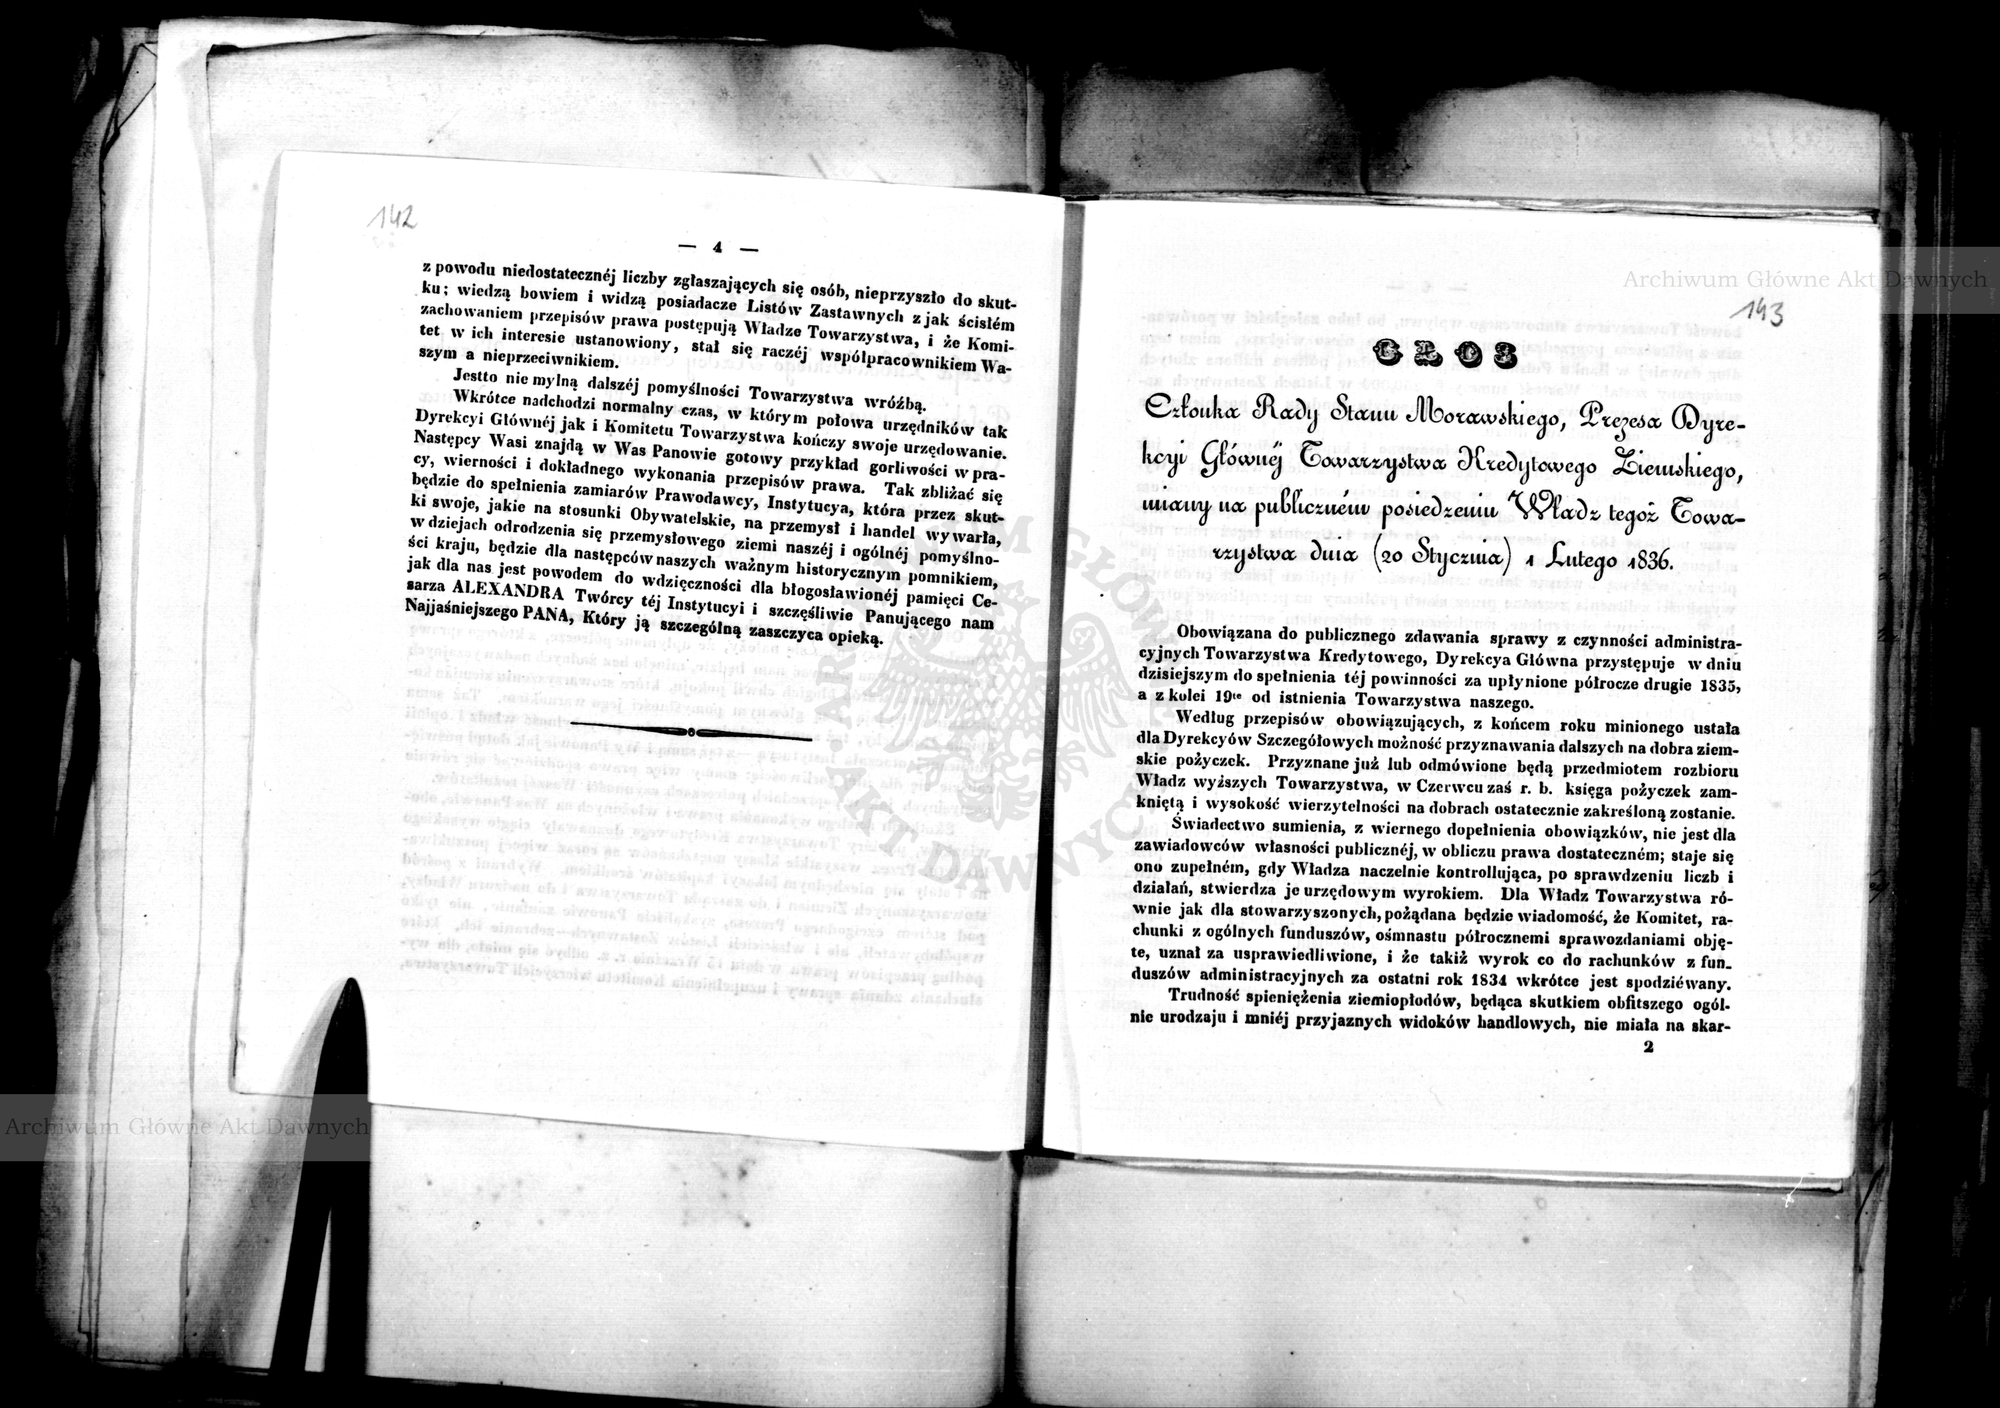 142
— 4 —
z powodu niedostatecznéj liczby zgłaszających się osób, nieprzyszło do skut-
ku; wiedzą bowiem i widzą posiadacze Listów Zastawnych z jak ścisłém
zachowaniem przepisów prawa postępują Władze Towarzystwa, i że Komi-
tet w ich interesie ustanowiony, stał się raczéj współpracownikiem Wa-
szym a nieprzeciwnikiem.
Jestto nie mylną dalszéj pomyślności Towarzystwa wróźbą.
Wkrótce nadchodzi normalny czas, w którym połowa urzędników tak
Dyrekcyi Głównéj jak i Komitetu Towarzystwa kończy swoje urzędowanie.
Następcy Wasi znajdą w Was Panowie gotowy przykład gorliwości w pra-
cy, wierności i dokładnego wykonania przepisów prawa. Tak zbliżać się
będzie do spełnienia zamiarów Prawodawcy, Instytucya, która przez skut-
ki swoje, jakie na stosunki Obywatelskie, na przemysł i handel wywarła,
w dziejach odrodzenia się przemysłowego ziemi naszéj i ogólnéj pomyślno-
ści kraju, będzie dla następców naszych ważnym historycznym pomnikiem,
jak dla nas jest powodem do wdzięczności dla błogosławionéj pamięci Ce-
sarza ALEXANDRA Twórcy téj Instytucyi i szczęśliwie Panującego nam
Najjaśniejszego PANA, Który ją szczególną zaszczyca opieką.
Archiwum Główne Akt Dawnych
143
GŁOS
Członka Rady Stanu Morawskiego, Prezesa Dyre-
kcyi Głównéj Towarzystwa Kredytowego Ziemskiego,
miany na publiczném posiedzeniu Władz tegoż Towa-
rzystwa dnia (20 Stycznia) 1 Lutego 1836.
Obowiązana do publicznego zdawania sprawy z czynności administra-
cyjnych Towarzystwa Kredytowego, Dyrekcya Główna przystępuje w dniu
dzisiejszym do spełnienia téj powinności za upłynione półrocze drugie 1835,
a z kolei 19te od istnienia Towarzystwa naszego.
Według przepisów obowiązujących, z końcem roku minionego ustała
dla Dyrekcyów Szczegółowych możność przyznawania dalszych na dobra ziem-
skie pożyczek. Przyznane już lub odmówione będą przedmiotem rozbioru
Władz wyższych Towarzystwa, w Czerwcu zaś r. b. księga pożyczek zam-
kniętą i wysokość wierzytelności na dobrach ostatecznie zakreśloną zostanie.
Świadectwo sumienia, z wiernego dopełnienia obowiązków, nie jest dla
zawiadowców własności publicznéj, w obliczu prawa dostateczném; staje się
ono zupełném, gdy Władza naczelnie kontrollująca, po sprawdzeniu liczb i
działań, stwierdza je urzędowym wyrokiem. Dla Władz Towarzystwa ró-
wnie jak dla stowarzyszonych, pożądana będzie wiadomość, że Komitet, ra-
chunki z ogólnych funduszów, ośmnastu półrocznemi sprawozdaniami obję-
te, uznał za usprawiedliwione, i że takiż wyrok co do rachunków z fun-
duszów administracyjnych za ostatni rok 1834 wkrótce jest spodziéwany.
Trudność spieniężenia ziemiopłodów, będąca skutkiem obfitszego ogól-
nie urodzaju i mniéj przyjaznych widoków handlowych, nie miała na skar-
2
Archiwum Główne Akt Dawnych
ARCHIWUM GŁÓWNE
AKT DAWNYCH